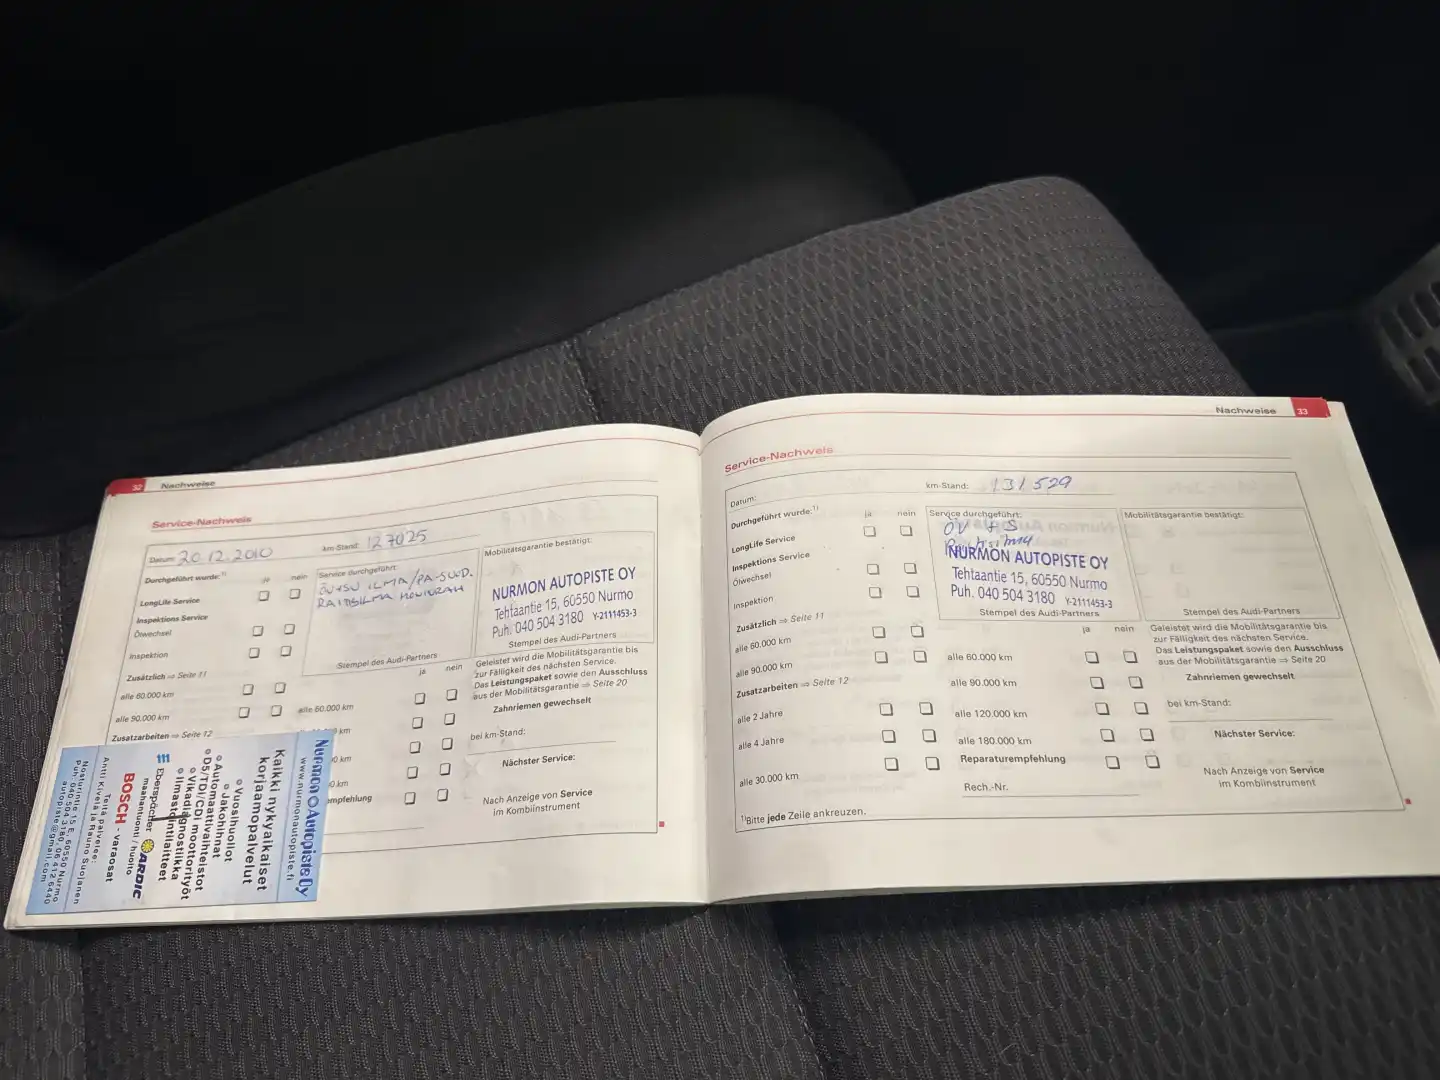 32 Nachweise
Service-Nachweis
Datum: 20.12.2010
km-Stand: 127025
Durchgeführt wurde:¹⁾
ja nein
LongLife Service
Inspektions Service
Ölwechsel
Inspektion
Zusätzlich ⇒ Seite 11
alle 60.000 km
alle 90.000 km
Zusatzarbeiten ⇒ Seite 12
Service durchgeführt:
ILMA/PA-SUOD.
RAITISILMA
Stempel des Audi-Partners
ja nein
alle 60.000 km
km
00 km
0.km
empfehlung
Mobilitätsgarantie bestätigt:
NURMON AUTOPISTE OY
Tehtaantie 15, 60550 Nurmo
Puh. 040 504 3180 Y-2111453-3
Stempel des Audi-Partners
Geleistet wird die Mobilitätsgarantie bis
zur Fälligkeit des nächsten Service.
Das Leistungspaket sowie den Ausschluss
aus der Mobilitätsgarantie ⇒ Seite 20
Zahnriemen gewechselt
bei km-Stand:
Nächster Service:
Nach Anzeige von Service
im Kombiinstrument
Nurmon Autopiste Oy
www.nurmonautopiste.fi
Kaikki nykyaikaiset
korjaamopalvelut
Vuosihuollot
Jakohihnat
Automaattivaihteistot
D5/TDI/CDI moottorityöt
Vikadiagnostiikka
Ilmastointilaitteet
Eberspächer ARDIC
maahantuonti / huolto
BOSCH - varaosat
Teitä palvelee:
Antti Kivelä ja Rauno Suojanen
Nosturintie 15 E, 60550 Nurmo
Puh. 040 504 3180, 06 412 6440
autopiste@gmail.com
Nachweise 33
Service-Nachweis
Datum:
km-Stand: 131529
Durchgeführt wurde:¹⁾
ja nein
LongLife Service
Inspektions Service
Ölwechsel
Inspektion
Zusätzlich ⇒ Seite 11
alle 60.000 km
alle 90.000 km
Zusatzarbeiten ⇒ Seite 12
alle 2 Jahre
alle 4 Jahre
alle 30.000 km
¹⁾Bitte jede Zeile ankreuzen.
Service durchgeführt:
NURMON AUTOPISTE OY
Tehtaantie 15, 60550 Nurmo
Puh. 040 504 3180 Y-2111453-3
Stempel des Audi-Partners
ja nein
alle 60.000 km
alle 90.000 km
alle 120.000 km
alle 180.000 km
Reparaturempfehlung
Rech.-Nr.
Mobilitätsgarantie bestätigt:
Stempel des Audi-Partners
Geleistet wird die Mobilitätsgarantie bis
zur Fälligkeit des nächsten Service.
Das Leistungspaket sowie den Ausschluss
aus der Mobilitätsgarantie ⇒ Seite 20
Zahnriemen gewechselt
bei km-Stand:
Nächster Service:
Nach Anzeige von Service
im Kombiinstrument